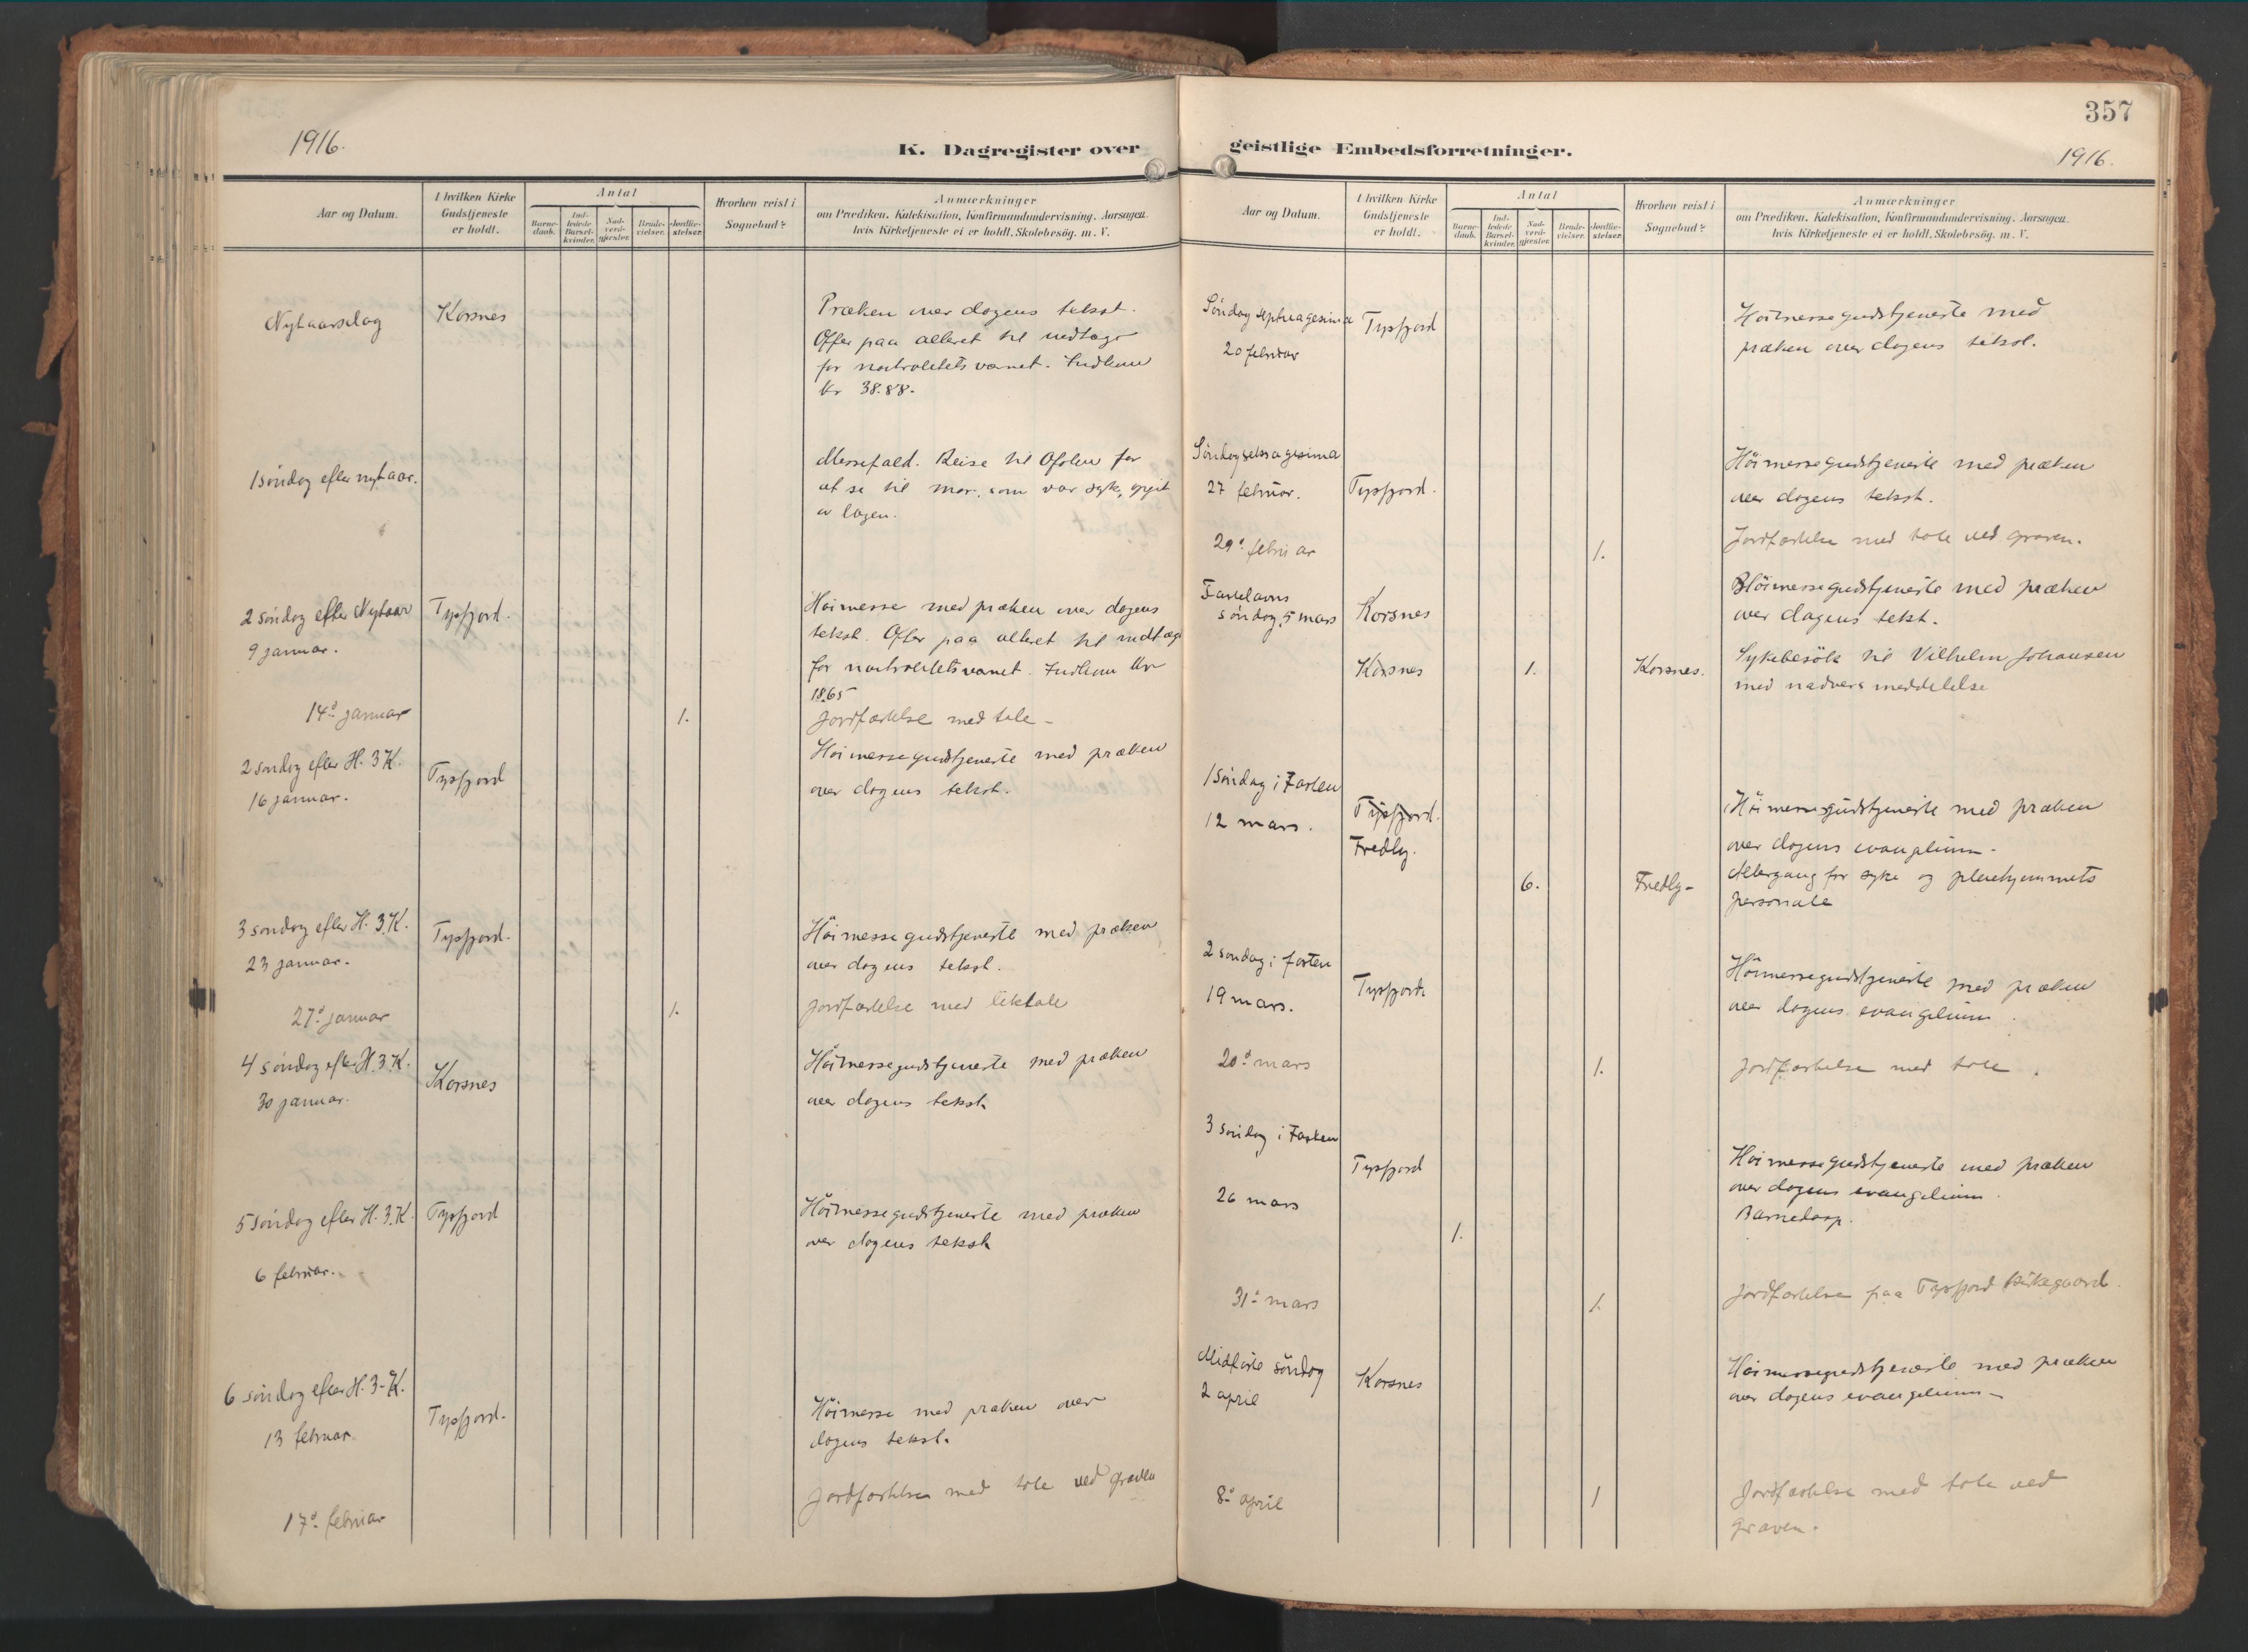 1916.
K. Dagregister over
Aar og Datum.
I hvilken Kirke
Gudstjeneste
er holdt.
Antal
Barne-
daab.
Ind-
ledede
Barsel-
kvinder.
Nad-
verd-
gjæster.
Brude-
vielser.
Jordfæ-
stelser.
Hvorhen reist i
Sognebud?
Anmærkninger
om Prædiken, Katekisation, Konfirmandundervisning. Aarsagen
hvis Kirketjeneste ei er holdt. Skolebesög. m. V.
Nytaarsdag
Korsnes
Præken over dagens tekst.
Offer paa alteret til indtægt
for nøitralitetsvernet. Indkom
kr 38.88.
1 söndag efter nytaar.
Messefald. Reise til Ofoten for
at se til mor, som var syk, opgit
av lægen.
2 söndag efter Nytaar
9 januar.
Tysfjord.
Höimesse med præken over dagens
tekst. Offer paa alteret til indtægt
for nøitralitetsvernet. Indkom kr
18.65
14d januar
1.
Jordfæstelse med tale –
2 söndag efter H. 3 K.
16 januar.
Tysfjord
Höimessegudstjeneste med præken
over dagens tekst.
3 söndag efter H. 3. K.
23 januar.
Tysfjord.
Höimessegudstjeneste med præken
over dagens tekst.
27d januar
1.
Jordfæstelse med liktale
4 söndag efter H. 3. K.
30 januar.
Korsnes
Höimessegudstjeneste med præken
over dagens tekst.
5 söndag efter H. 3. K.
6 februar.
Tysfjord
Höimessegudstjeneste med præken
over dagens tekst
6 söndag efter H. 3. K.
13 februar.
Tysfjord.
Höimesse med præken over
dagens tekst.
17d februar
Jordfæstelse med tale ved graven
357
geistlige Embedsforretninger.
1916.
Aar og Datum.
I hvilken Kirke
Gudstjeneste
er holdt.
Antal
Barne-
daab.
Ind-
ledede
Barsel-
kvinder.
Nad-
verd-
gjæster.
Brude-
vielser.
Jordfæ-
stelser.
Hvorhen reist i
Sognebud?
Anmærkninger
om Prædiken, Katekisation, Konfirmandundervisning. Aarsagen
hvis Kirketjeneste ei er holdt. Skolebesög. m. V.
Söndag septuagesima
20 februar
Tysfjord
Höimessegudstjeneste med
præken over dagens tekst.
Söndag seksagesima
27 februar.
Tysfjord.
Höimessegudstjeneste med præken
over dagens tekst.
29d februar
1.
Jordfæstelse med tale ved graven.
Fastelavns
söndag, 5 mars
Korsnes
Höimessegudstjeneste med præken
over dagens tekst.
Korsnes
1.
Korsnes.
Sykebesök til Vilhelm Johansen
med nadvers meddelelse
1 söndag i Fasten
12 mars.
Tysfjord.
Fredly.
Höimessegudstjeneste med præken
over dagens evangelium –
6.
Fredly –
Altergang for syke og pleiehjemmets
personale
2 söndag i fasten
19 mars.
Tysfjord.
Höimessegudstjeneste med præken
over dagens evangelium.
20d mars
1.
Jordfæstelse med tale.
3 söndag i Fasten
26 mars
Tysfjord
Höimessegudstjeneste med præken
over dagens evangelium.
1.
Barnedaap.
31d mars
1.
Jordfæstelse paa Tysfjord kirkegaard.
Midfaste söndag
2 april
Korsnes
Höimessegudstjeneste med præken
over dagens evangelium –
8d april
1
Jordfæstelse med tale ved
graven.